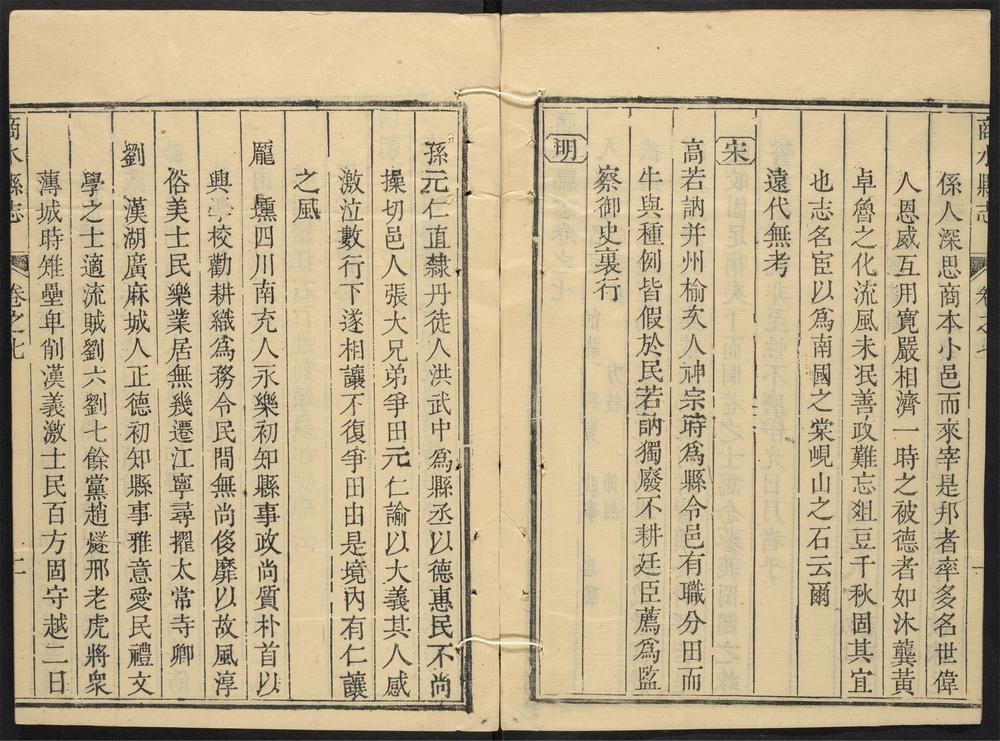 商水縣志 卷之七 一
係人深思商本小邑而來宰是邦者率多名世偉
人恩威互用寛嚴相濟一時之被德者如沐龔黃
卓魯之化流風未泯善政難忘俎豆千秋固其宜
也志名宦以爲南國之棠峴山之石云爾
遠代無考
宋
高若訥并州榆次人神宗時爲縣令邑有職分田而
牛與種例皆假於民若訥獨廢不耕廷臣薦爲監
察御史裏行
明
孫元仁直隸丹徒人洪武中爲縣丞以德惠民不尚
操切邑人張大兄弟爭田元仁諭以大義其人感
激泣數行下遂相讓不復爭田由是境內有仁讓
之風
龎壎四川南充人永樂初知縣事政尚質朴首以
興學校勸耕織爲務令民間無尚侈靡以故風淳
俗美士民樂業居無幾遷江寧尋擢太常寺卿
劉漢湖廣麻城人正德初知縣事雅意愛民禮文
學之士適流賊劉六劉七餘黨趙燧邢老虎將衆
薄城時雉壘卑削漢義激士民百方固守越二日
商水縣志 卷之七 二